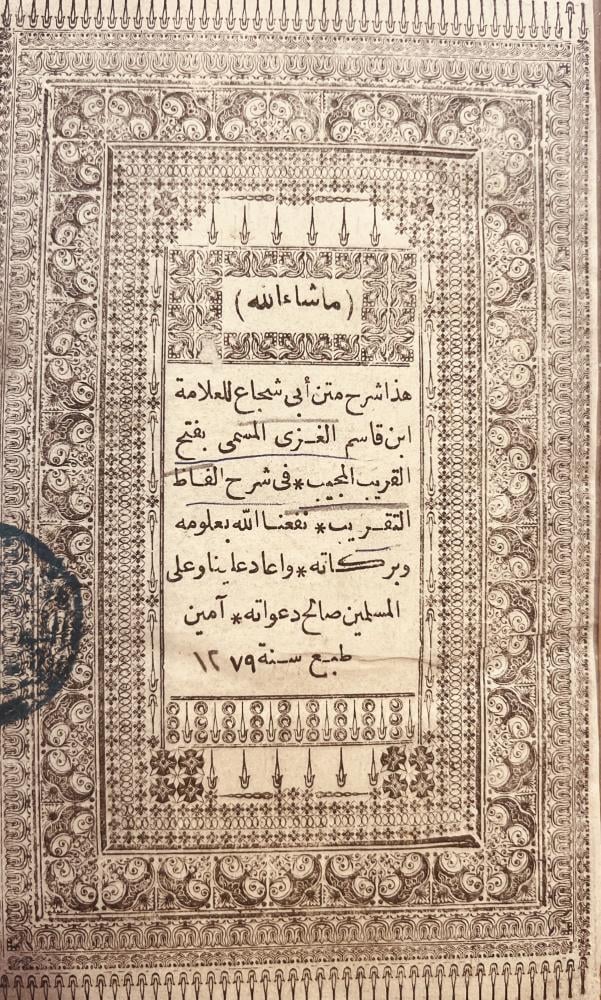 (ما شاء الله)
هذا شرح متن أبى شجاع للعلامة
ابن قاسم الغـزى المسمى بفتح
القريب المجيب * فى شرح الفاظ
التقـريب * نفعنـا الله بعلومه
وبركاته * واعاد علينا وعلى
المسلمين صالح دعواته * آمين
طبـع سـنة ١٢٧٩